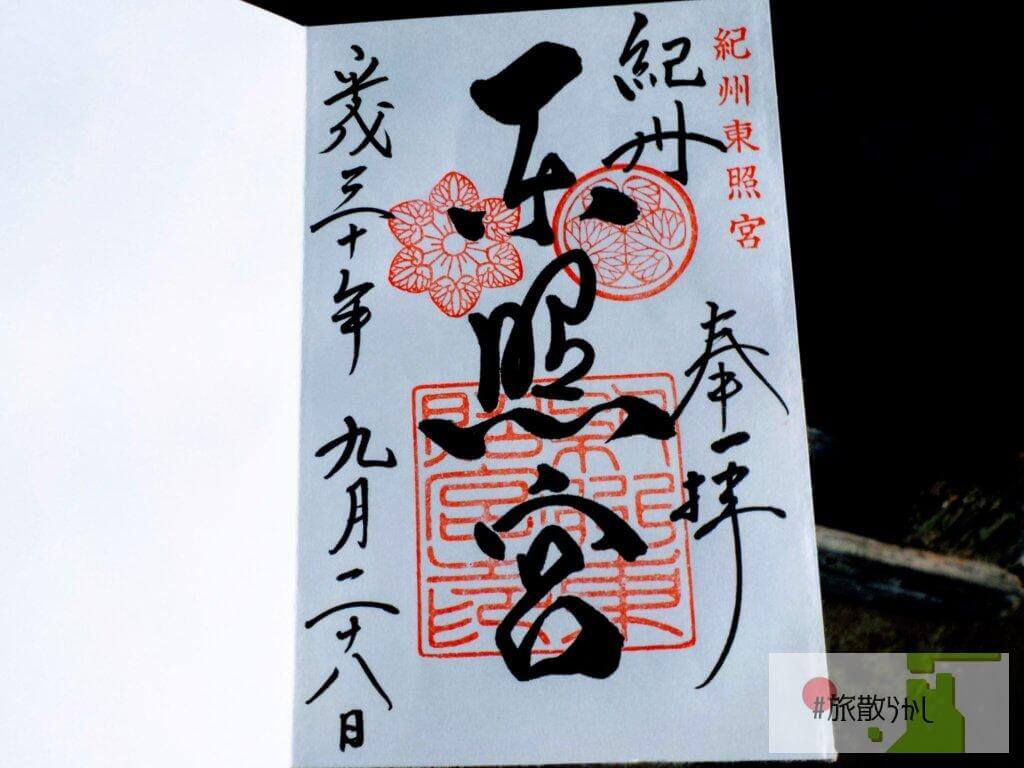 紀州東照宮
紀州
奉拝
東照宮
平成三十年 九月二十八日
#旅散らかし